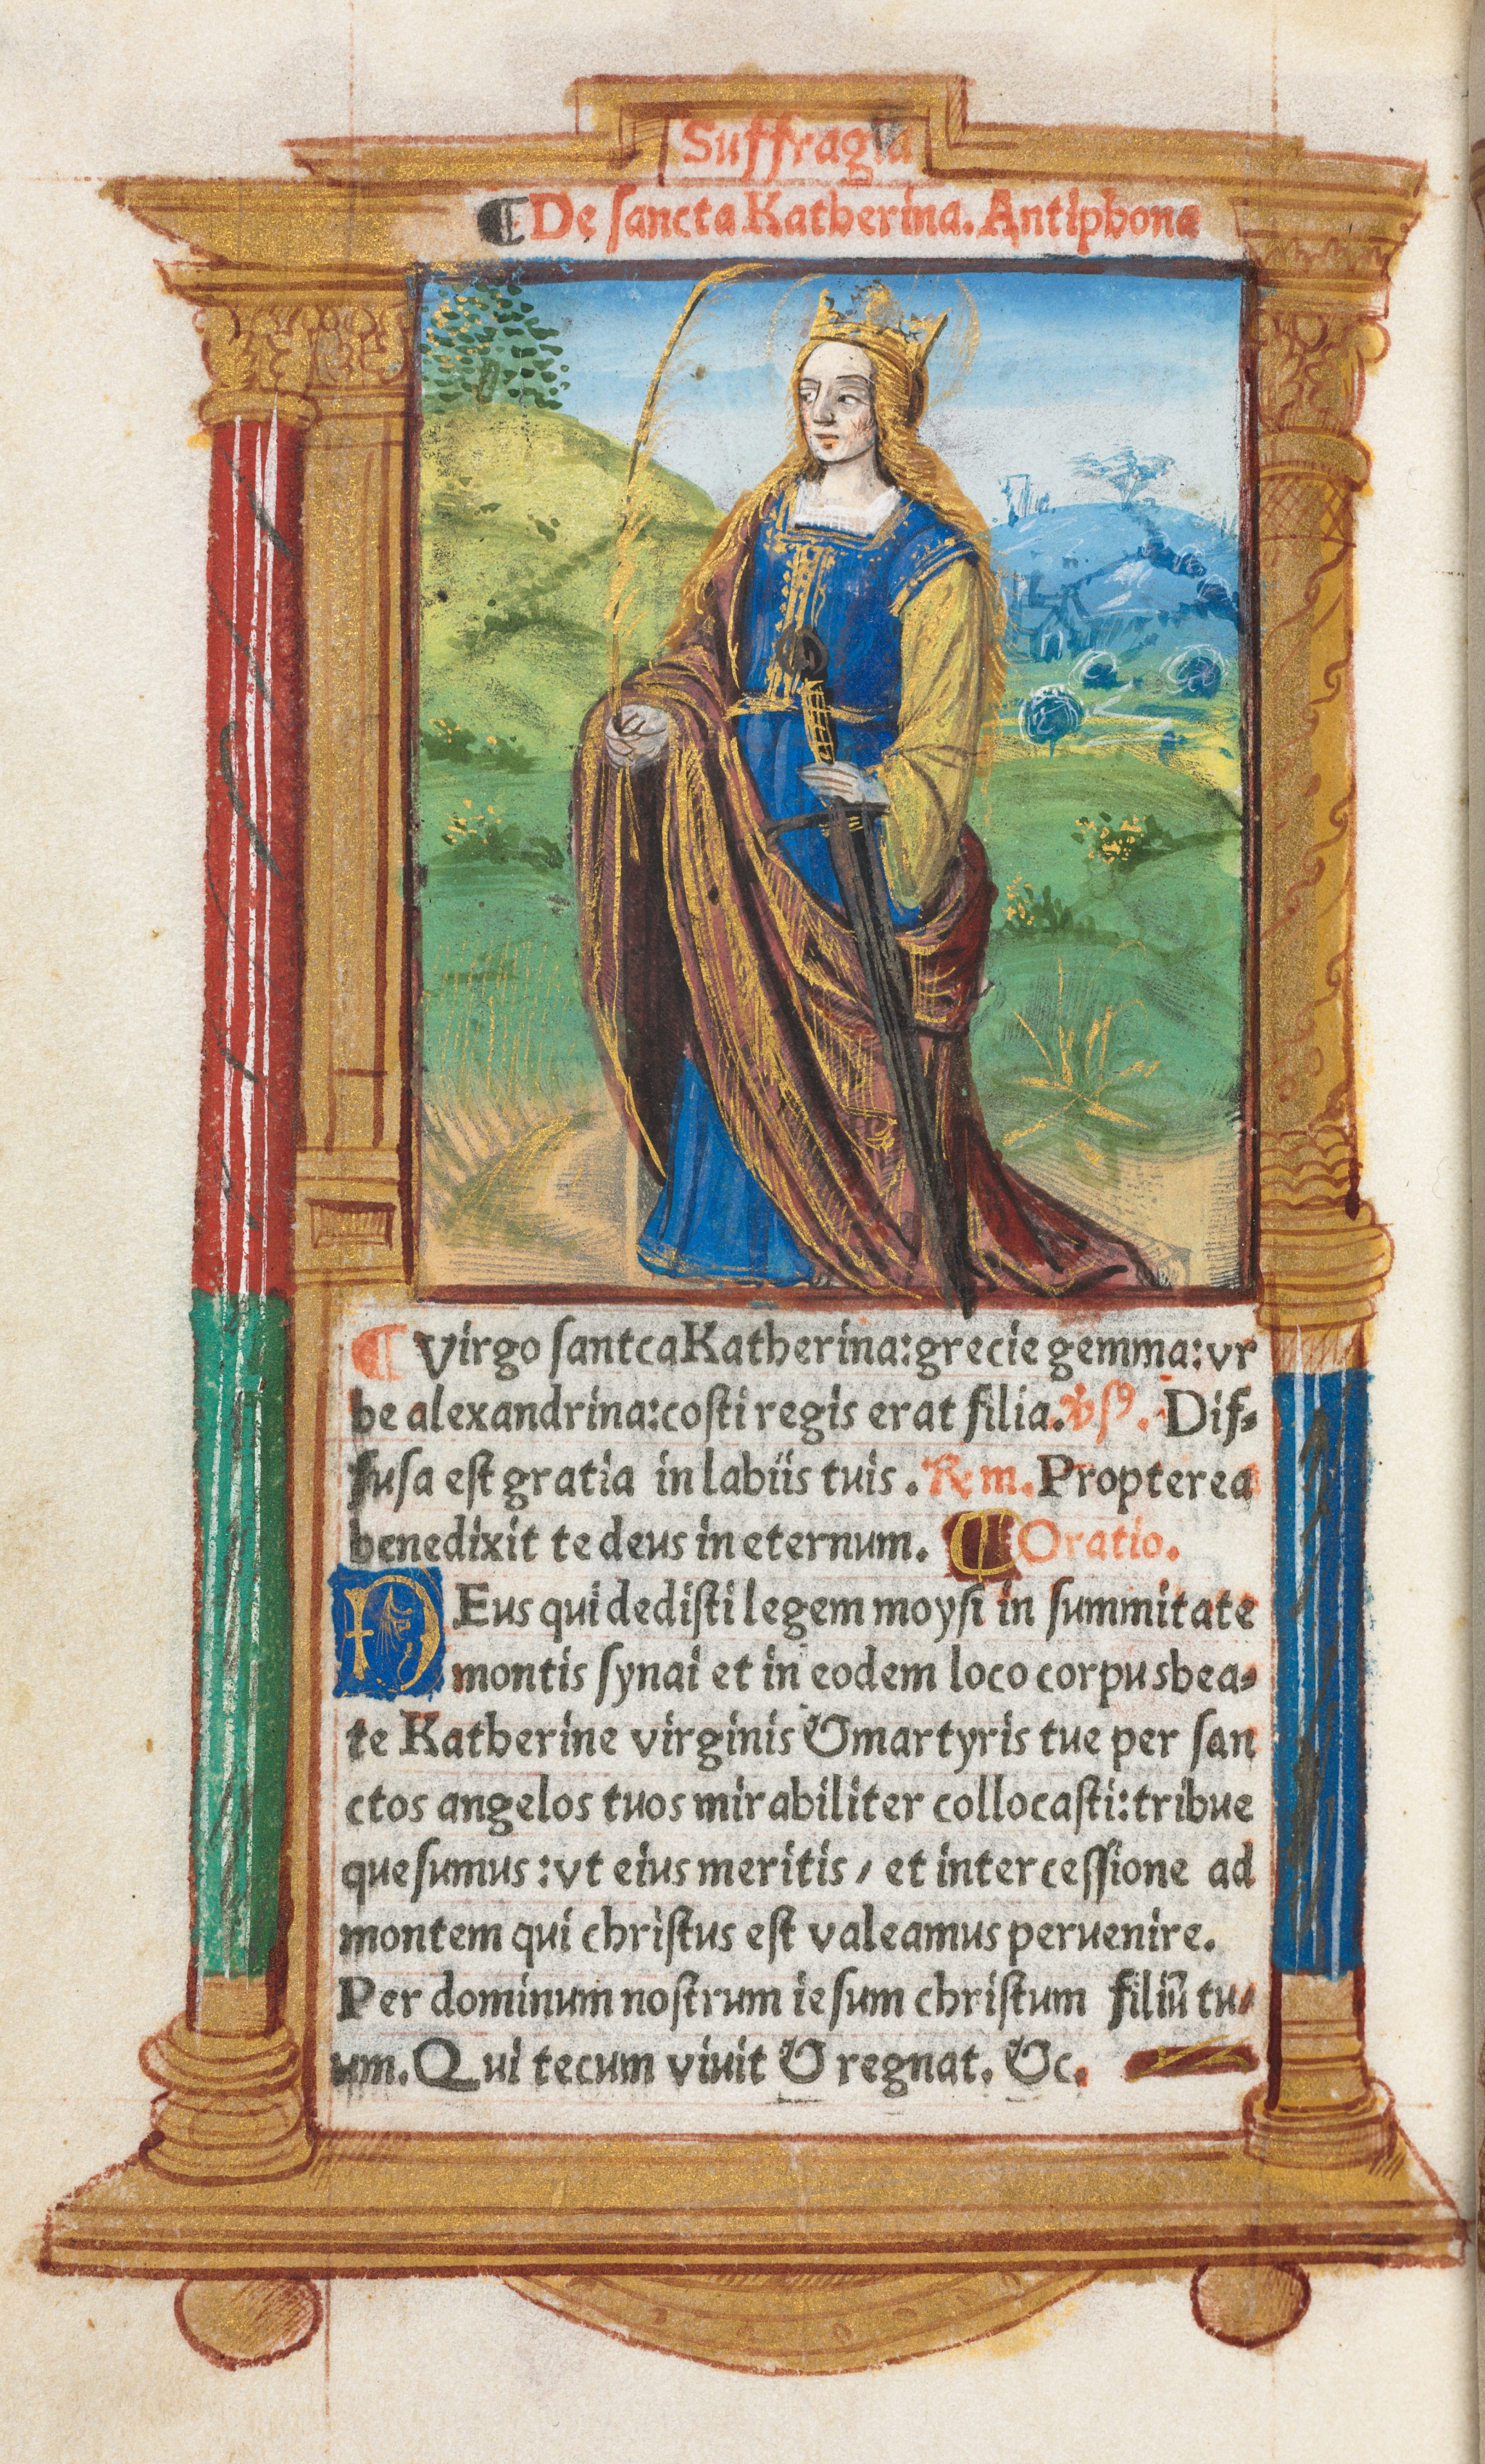 Suffragia
¶ De sancta Katherina. Antiphona
¶ Virgo santca Katherina: grecie gemma: vr
be alexandrina: costi regis erat filia. v̾sꝰ. Dif-
fusa est gratia in labiis tuis. ℞m. Propterea
benedixit te deus in eternum. ¶ Oratio.
DEus qui dedisti legem moysi in summitate
montis synai et in eodem loco corpus bea-
te Katherine virginis & martyris tue per san
ctos angelos tuos mirabiliter collocasti: tribue
quesumus: vt eius meritis / et intercessione ad
montem qui christus est valeamus peruenire.
Per dominum nostrum iesum christum filiū tu-
um. Qui tecum viuit & regnat. &c.